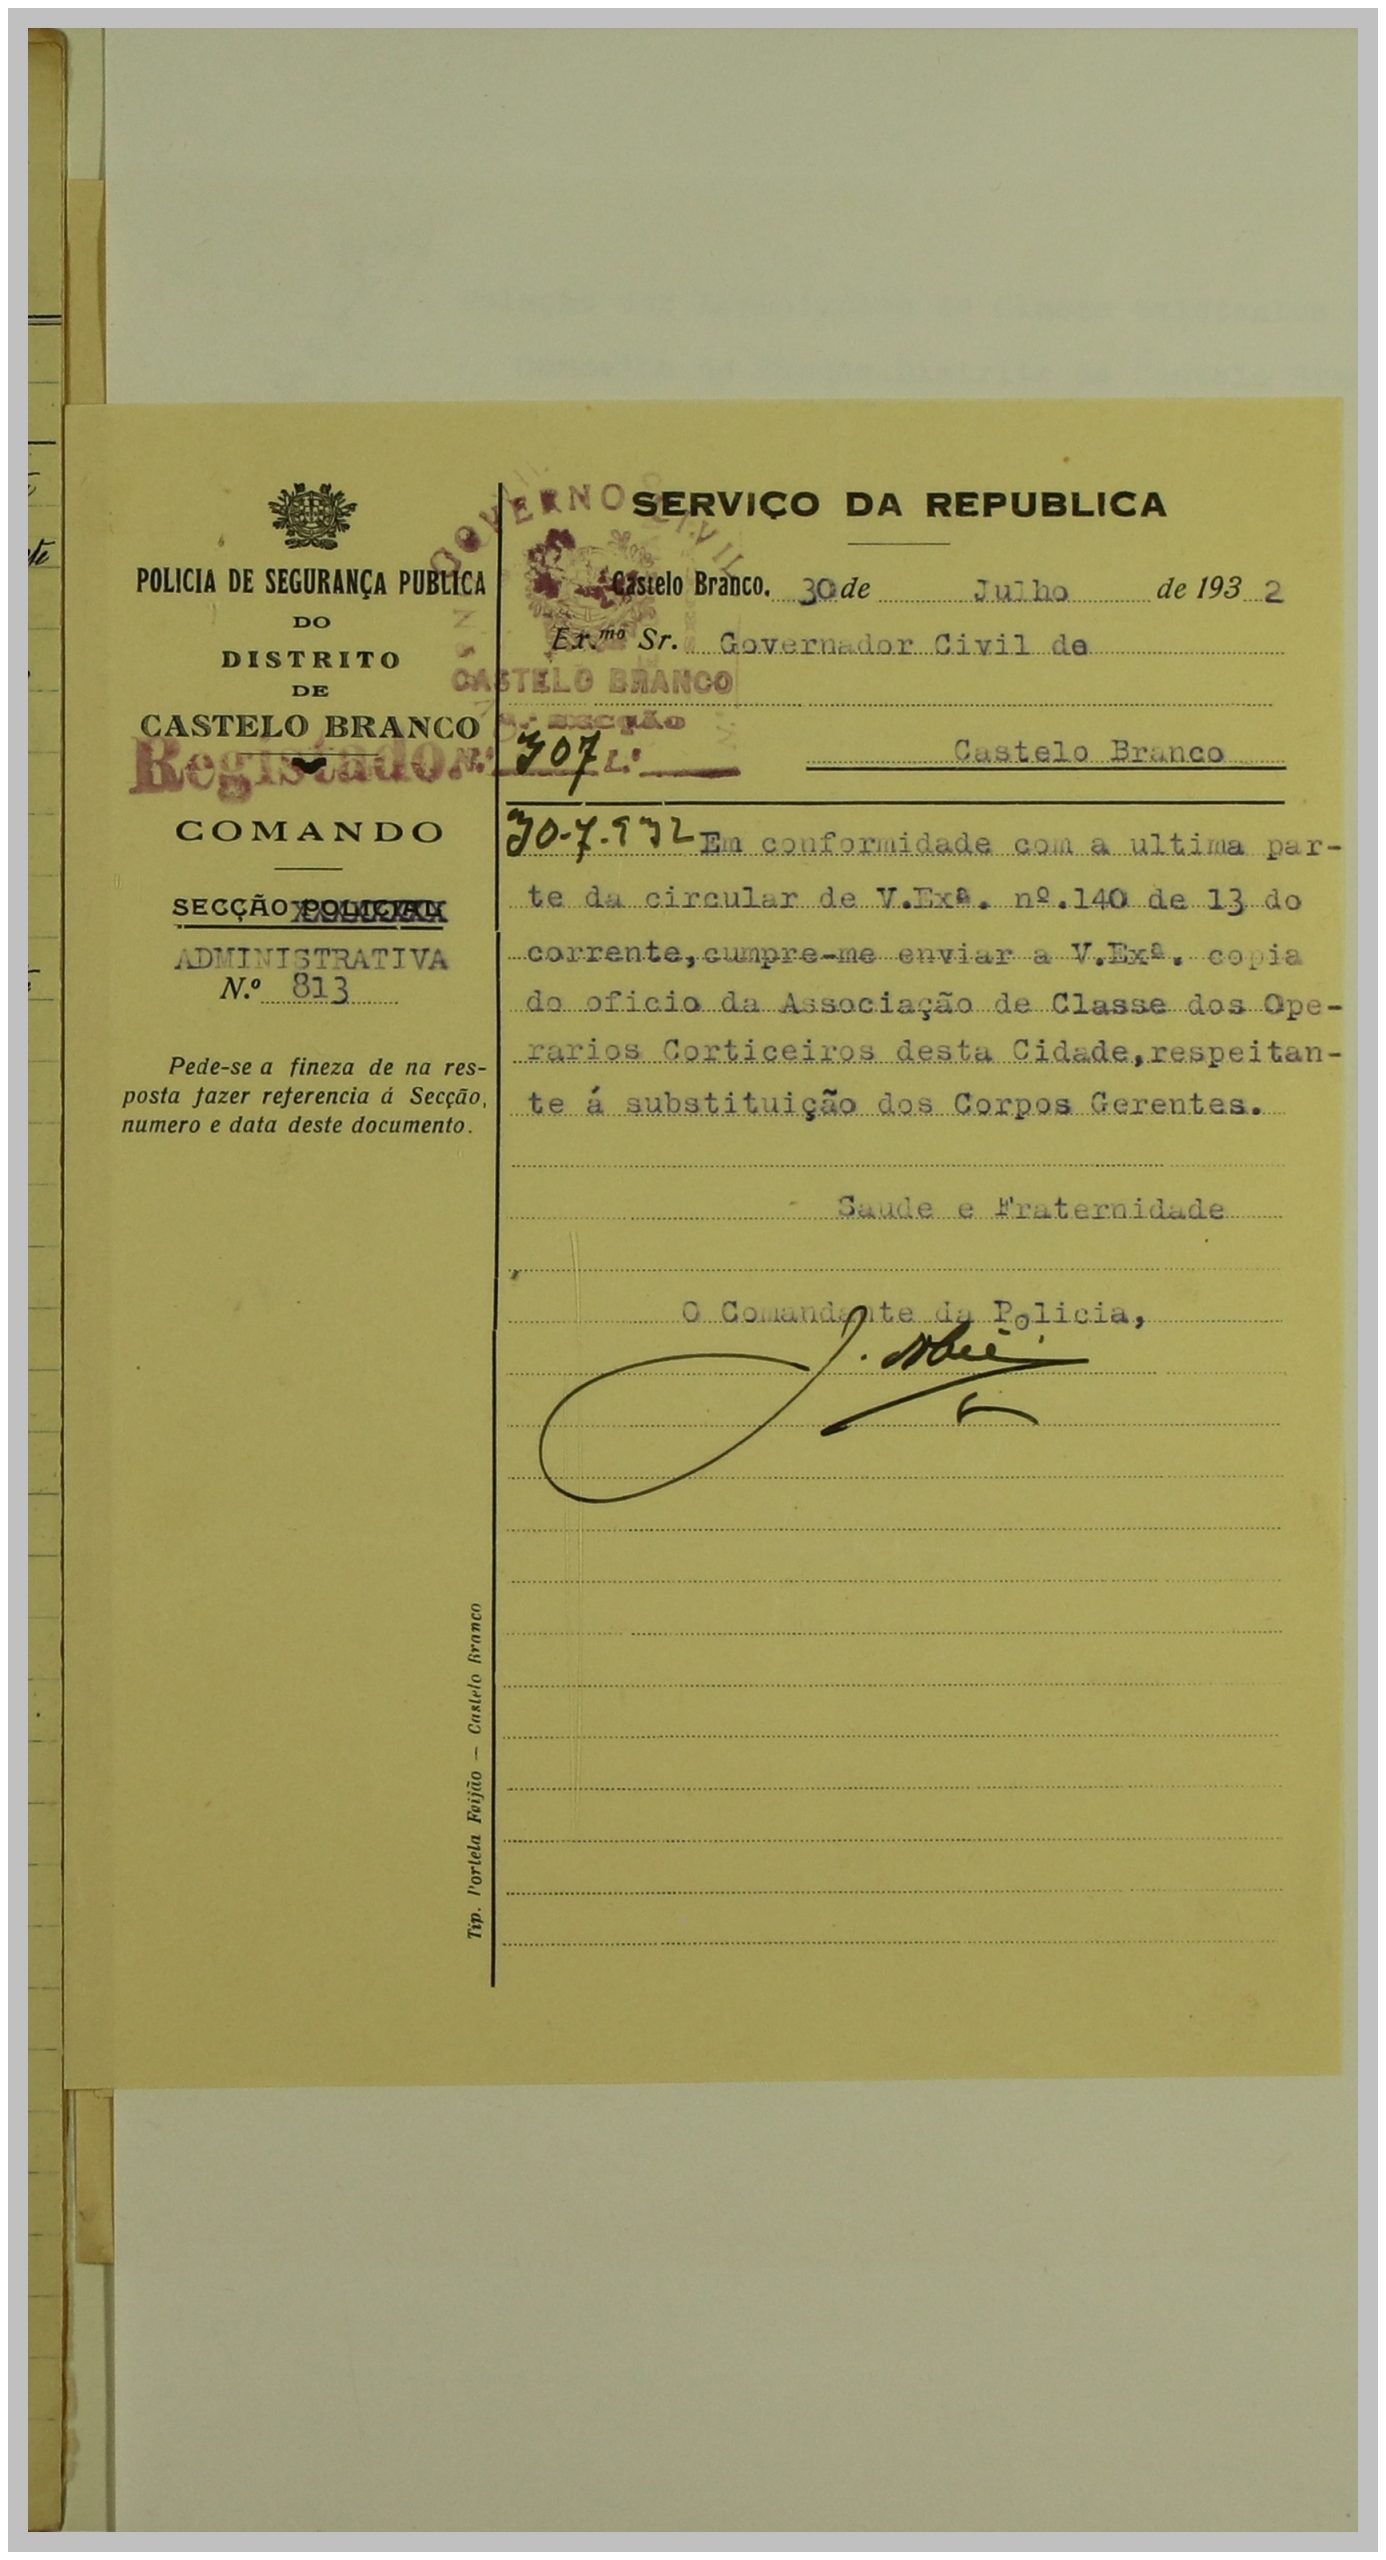 POLICIA DE SEGURANÇA PUBLICA
DO
DISTRITO
DE
CASTELO BRANCO
Registado N.º 307 L.º
COMANDO
SECÇÃO POLICIAL
ADMINISTRATIVA
N.º 813
Pede-se a fineza de na res-
posta fazer referencia á Secção,
numero e data deste documento.
Tip. Portela Feijão — Castelo Branco
GOVERNO CIVIL
CASTELO BRANCO
SECÇÃO
SERVIÇO DA REPUBLICA
Castelo Branco, 30 de Julho de 1932
Ex.mo Sr. Governador Civil de
Castelo Branco
30-7-932
Em conformidade com a ultima par-
te da circular de V.Exª. nº.140 de 13 do
corrente,cumpre-me enviar a V.Exª. copia
do oficio da Associação de Classe dos Ope-
rarios Corticeiros desta Cidade,respeitan-
te á substituição dos Corpos Gerentes.
Saude e Fraternidade
O Comandante da Policia,